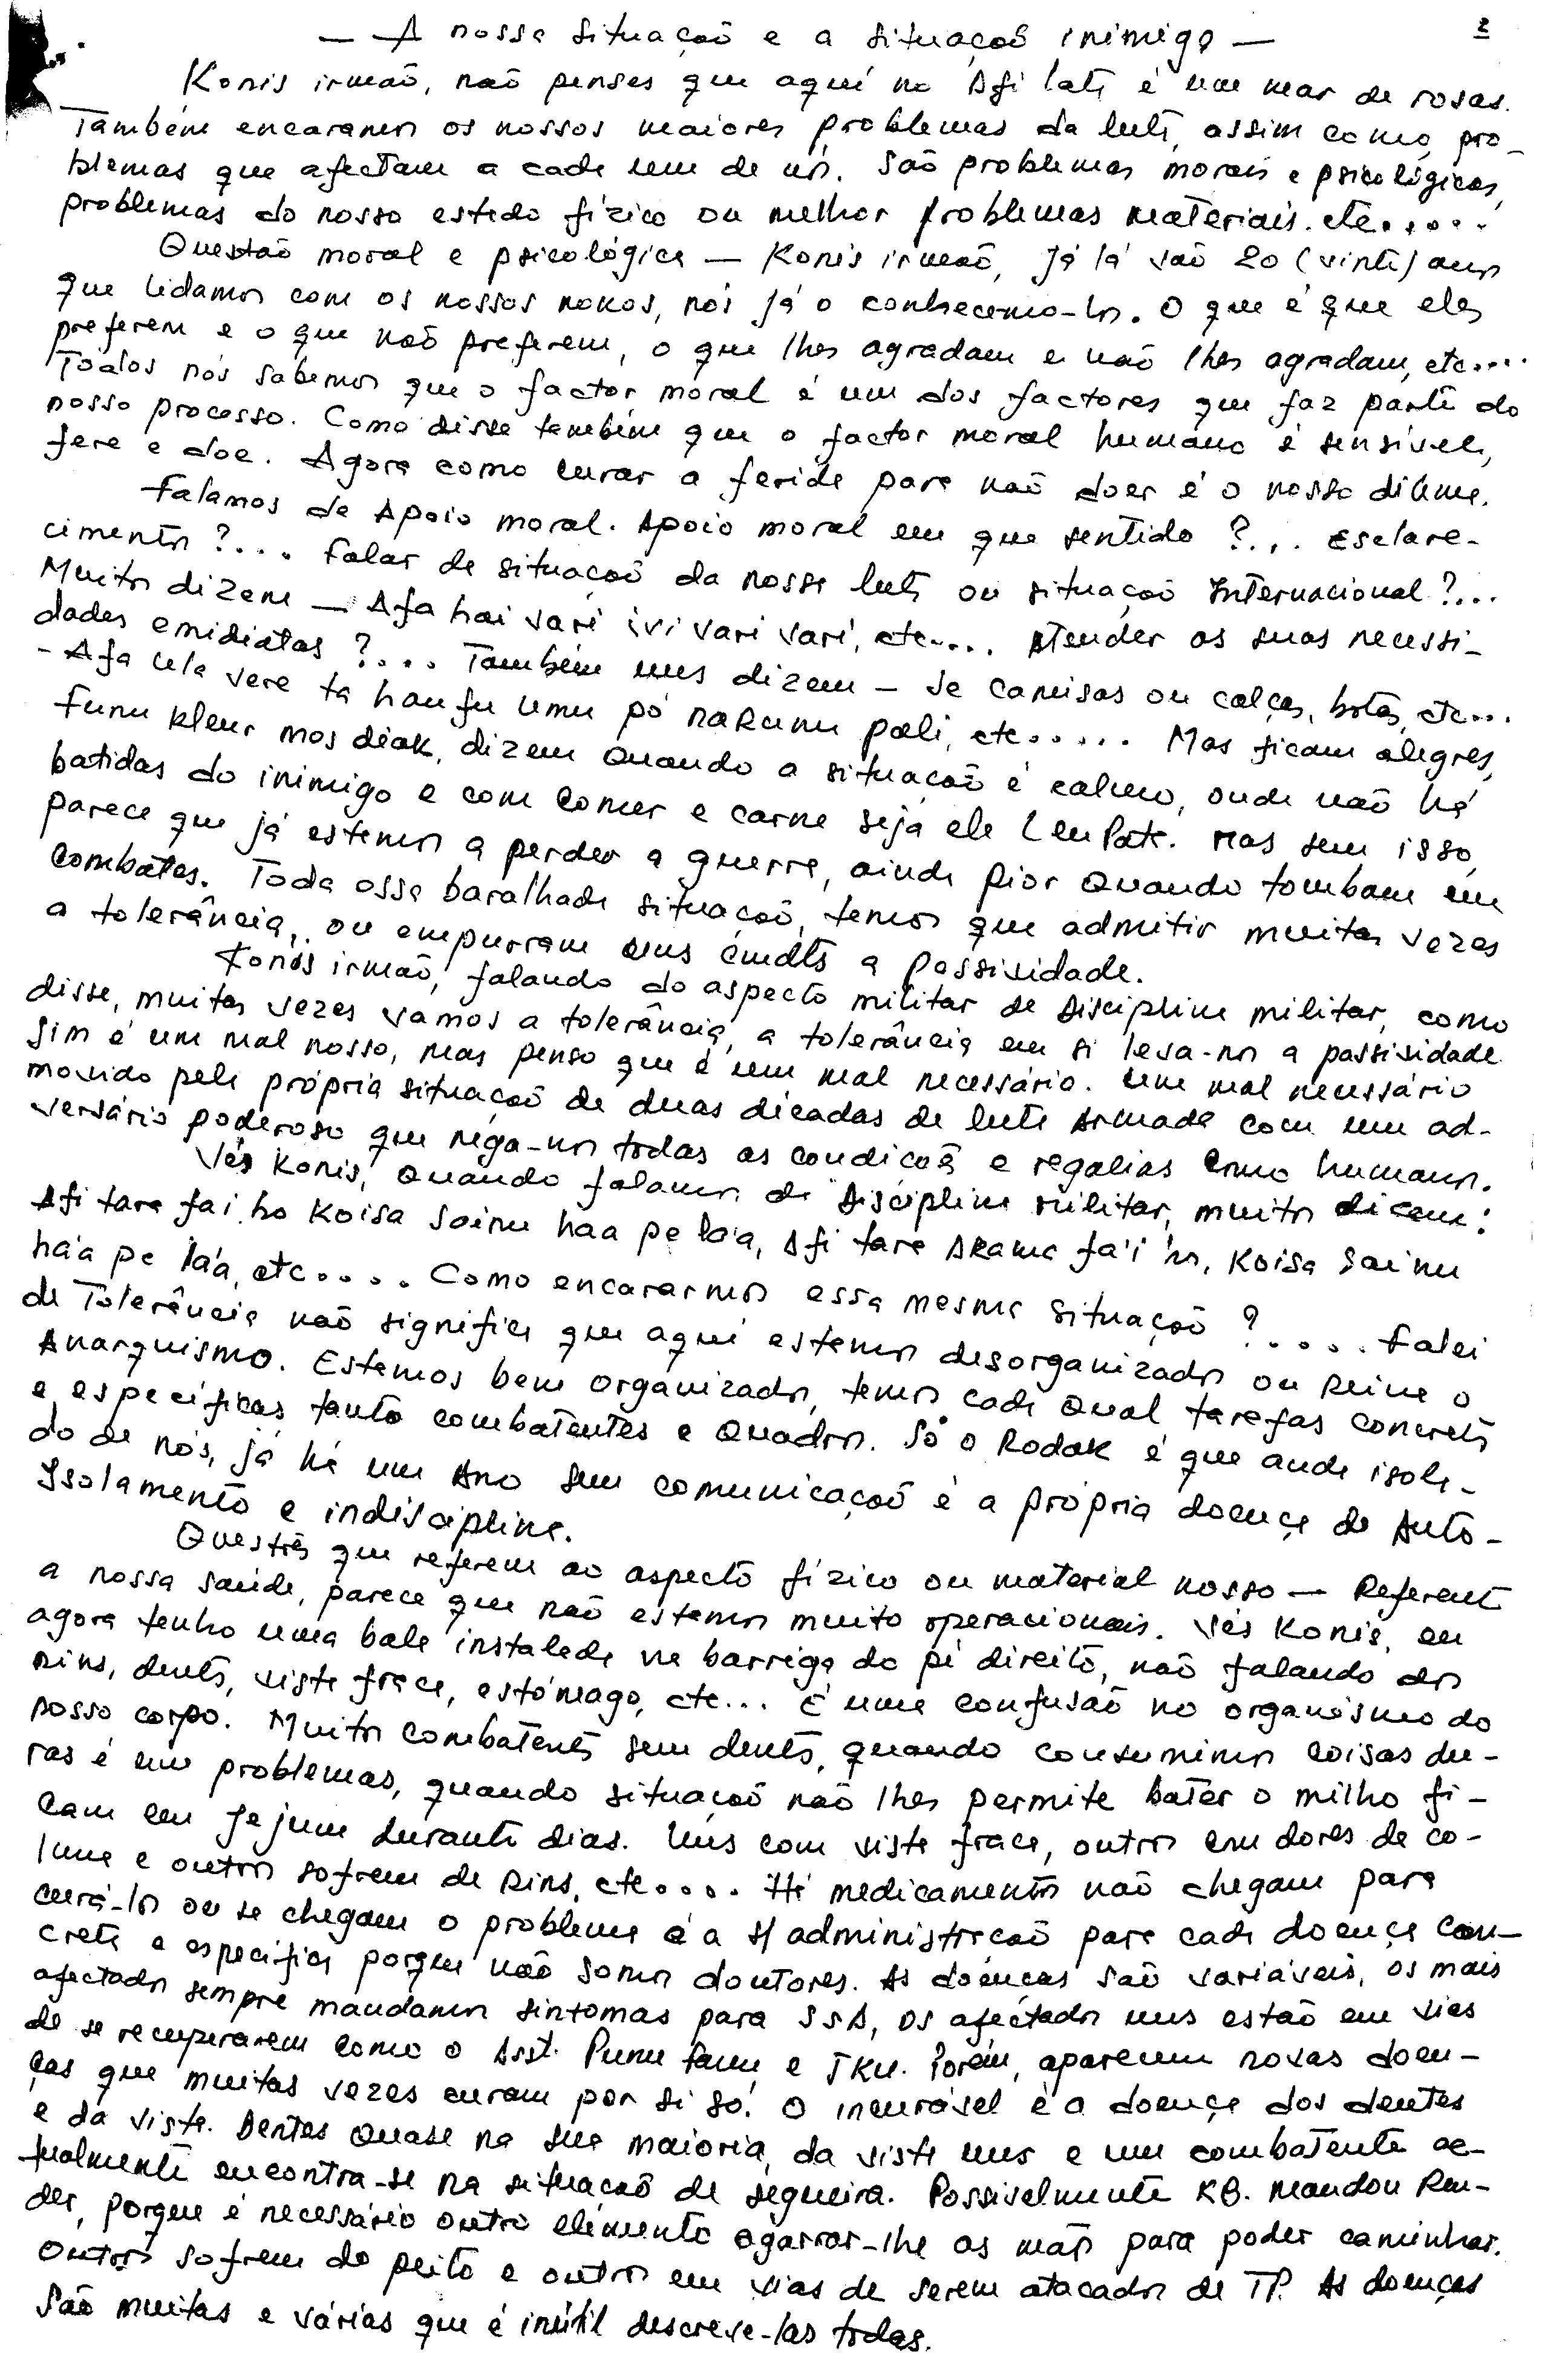 2
— A nossa situação e a situação inimiga —
Konis irmão, não penses que aqui no Afi lati é um mar de rosas.
Também encaramos os nossos maiores problemas da luta, assim como pro-
blemas que afectam a cada um de nós. São problemas morais e psicológicos,
problemas do nosso estado fízico ou melhor problemas materiais. etc.....
Questão moral e psicológica — Konis irmão, já lá vão 20 (vinte) anos
que lidamos com os nossos nonos, nós já o conhecemo-los. O que é que eles
preferem e o que não preferem, o que lhes agradam e não lhes agradam, etc....
Todos nós sabemos que o factor moral é um dos factores que faz parte do
nosso processo. Como disse também que o factor moral humano é sensível,
fere e doe. Agora como curar a ferida para não doer é o nosso dilema.
Falamos de Apoio moral. Apoio moral em que sentido ?... Esclare-
cimentos ?.... Falar de situação da nossa luta ou situação Internacional ?...
Muitos dizem — Afa hai vari ivi vari vari, etc.... Atender as suas necessi-
dades emidiatas ?.... Também uns dizem — Se camisas ou calças, botas, etc...
- Afa lela vere ta haufu umu pó naRunu pali, etc..... Mas ficam alegres,
Funu kleur mos diak, dizem quando a situação é calmo, onde não há
batidas do inimigo e com comer e carne seja ele Leu Pate. Mas sem isso,
parece que já estemos a perder a guerra, ainda pior quando tombam em
combates. Toda ossa baralhada situação, temos que admitir muitas vezes
a tolerância, ou empurram aus a passividade.
Konis irmão, falando do aspecto militar de Disciplina militar, como
disse, muitas vezes vamos a tolerância, a tolerância em si leva-nos a passividade.
Sim é um mal nosso, mas penso que é um mal necessário. Um mal necessário
movido pela própria situação de duas décadas de luta Armada com um ad-
versário poderoso que nega-nos todas as condicoẽs e regalias como humanos.
Vês Konis, quando falamos de Disciplina militar, muitos dicem:
Afi tara fai ho Koisa Sainu haa pe la'a, Afi tara ARama fa'i ho, Koisa Sainu
há'a pe la'a, etc..... Como encararmos essa mesma situação ?..... Falei
de Tolerância não significa que aqui estemos desorganizados ou Reina o
Anarquismo. Estemos bem organizados, temos cada qual tarefas concretas
e especificas tanto combatentes e Quadros. Só o Rodak é que anda isola-
do de nós, já há um Ano sem comunicação é a própria doença de Auto-
Isolamento e indisciplina.
Questões que referem ao aspecto fízico ou material nosso — Referente
a nossa saúde, parece que não estemos muito operacionais. Vês Konis, eu
agora tenho uma bala instalada na barriga do pé direito, não falando dos
Rins, dentes, vista fraca, estómago, etc... É uma confusão no organismo do
nosso corpo. Muitos combatentes sem dentes, quando consumimos coisas du-
ras é um problemas, quando situação não lhes permite bater o milho fi-
cam em jejum durante dias. Uns com vista fraca, outros em dores de co-
luna e outros sofrem de Rins, etc..... Há medicamentos não chegam para
curá-los ou se chegam o problema é a s/ administração para cada doença con-
creta e especifica porque não somos doutores. As doenças são variáveis, os mais
afectados sempre mandamos sintomas para SSA, os afectados uns estão em vias
de se recuperarem como o Asst. Punu Fanu e TKU. Porém, aparecem novas doen-
ças que muitas vezes curam por si só. O incurável é a doença dos dentes
e da vista. Dentes quase na sua maioria, da vista uns e um combatente ac-
tualmente encontra-se na situação de segueira. Possivelmente KB. mandou Ren-
der, porque é necessário outro elemento agarrar-lhe as mãos para poder caminhar.
Outros sofrem do peito e outros em vias de serem atacados de TP. As doenças
São muitas e várias que é inútil descreve-las todas.